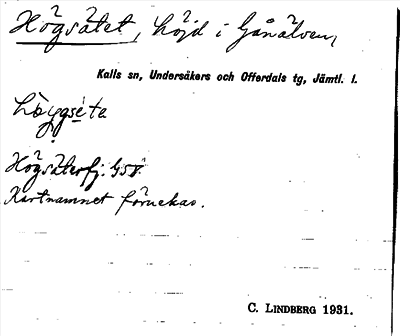 Högsätet, höjd i Gånälven,
Kalls sn, Undersåkers och Offerdals tg, Jämtl. l.
höggseta
Högsäterfj. GSV.
Kartnamnet förnekas.
C. LINDBERG 1931.